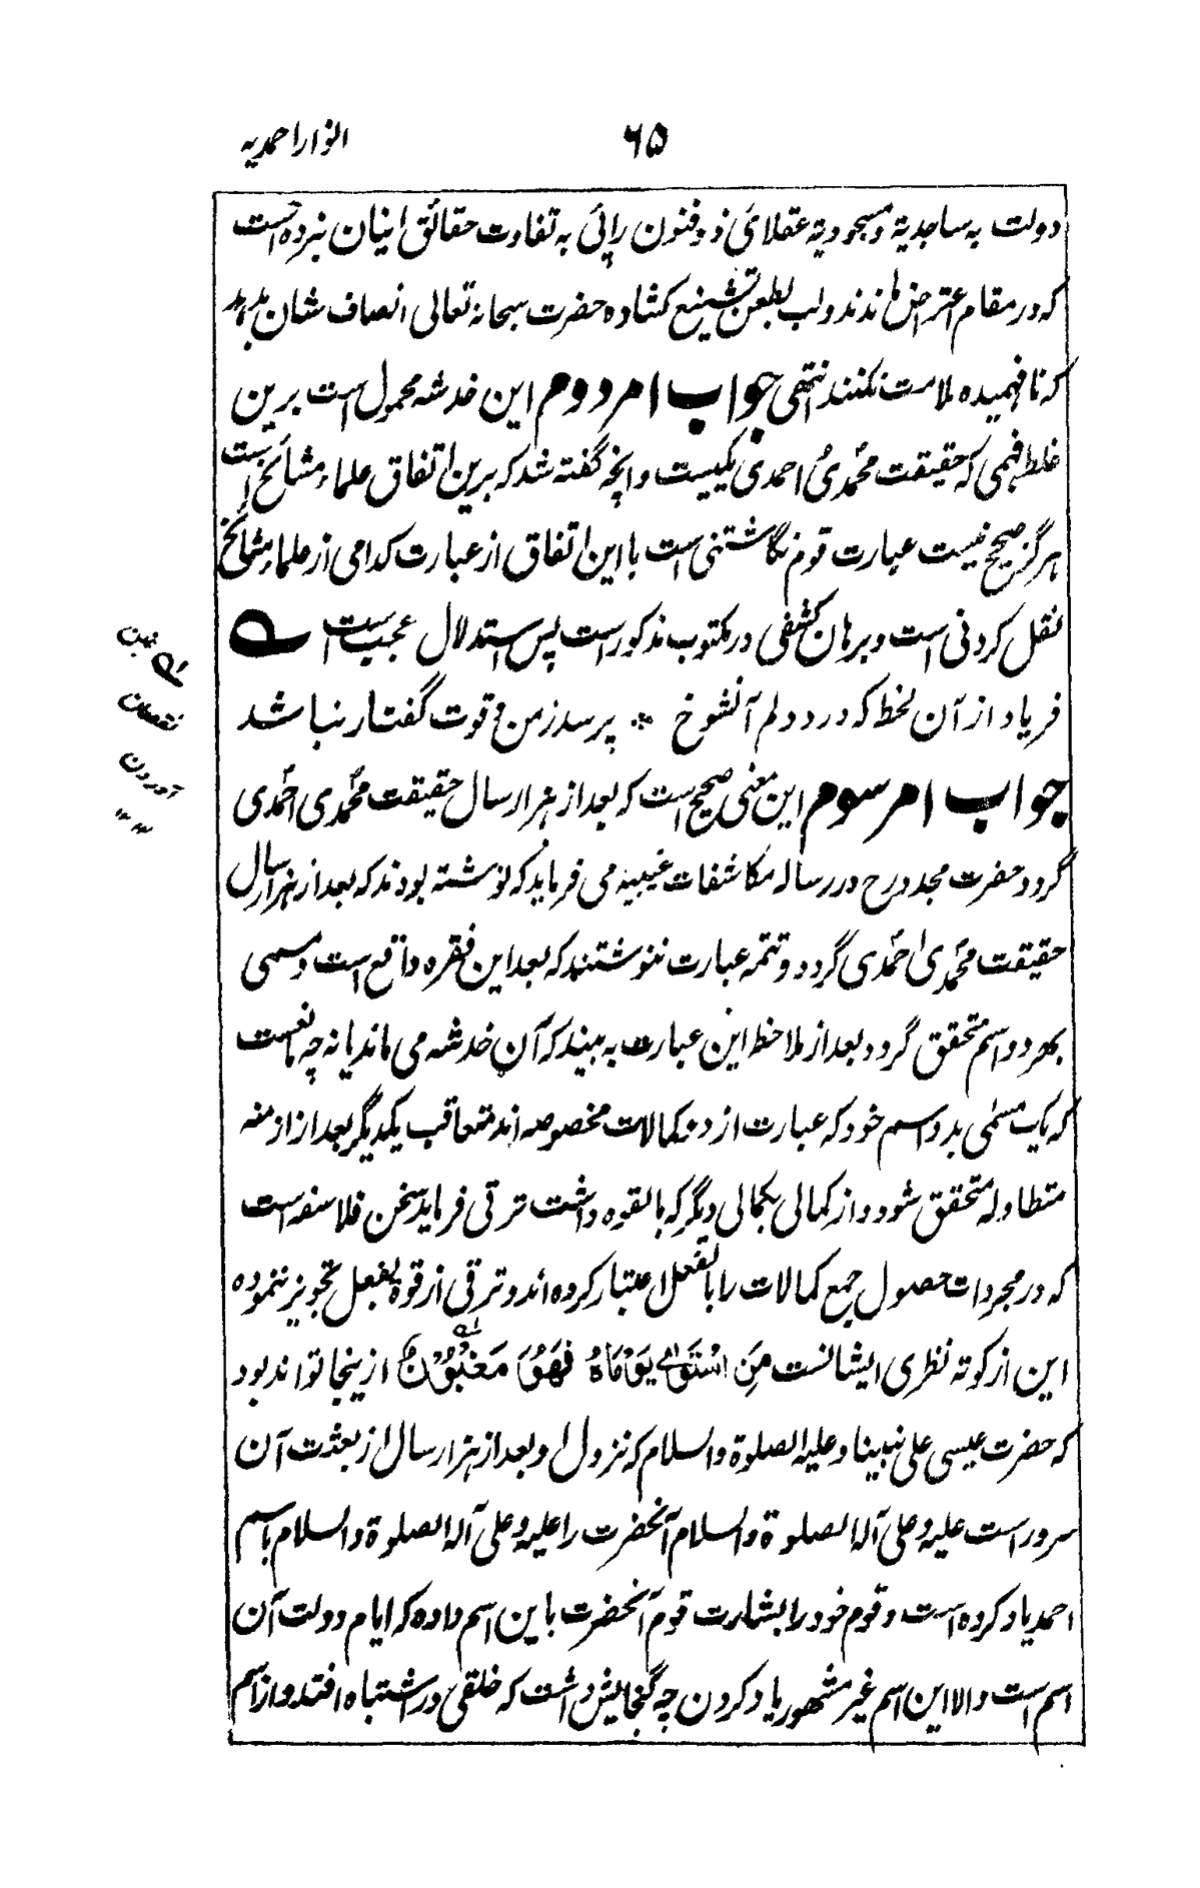 ۶۵ انوار احمدیه
دولت به ساجدیة و مسجودیة عقلائی ذو فنون رایی به تفاوت حقائق اینان نبرده است
که در مقام اعتراض ماندند و لب بطعن و تشنیع کشاده حضرت سبحانه تعالی انصاف شان بدهد
که نا فهمیده ملامت نکنند انتهی جواب امر دوم این خدشه محمول است برین
غلط فهمی که حقیقت محمدی و احمدی یکیست و انچه گفته شد که برین اتفاق علماء مشائخ است
هرگز صحیح نیست عبارت قوم نگاشتنی است با این اتفاق از عبارت کدامی از علماء مشائخ
نقل کردنی است و برهان کشفی در مکتوب مذکور است پس استدلال عجیب است ه
فریاد از آن لحظه که درد دلم آنشوخ * پرسد ز من و قوت گفتار نباشد
جواب امر سوم این معنی صحیح است که بعد از هزار سال حقیقت محمدی احمدی
گردد حضرت مجدد رح در رساله مکاشفات غیبیه می فرماید که نوشته بودند که بعد از هزار سال
حقیقت محمدی احمدی گردد و تتمه عبارت ننوشتند که بعد این فقره واقع است و مسمی
بهر دو اسم متحقق گردد بعد از ملاحظه این عبارت به بیند که آن خدشه می ماند یا نه چه مانعست
که یک مسمی بدو اسم خود که عبارت از دو کمالات مخصوصه اند متعاقب یکدیگر بعد از ازمنه
متطاوله متحقق شود و از کمالی بکمالی دیگر که بالقوه داشت ترقی فرماید سخن فلاسفه است
که در مجردات حصول جمیع کمالات را بالفعل اعتبار کرده اند و ترقی از قوة بفعل تجویز ننموده
این از کوته نظری ایشانست مَنِ اسْتَوٰی یَوْمَاهُ فَهُوَ مَغْبُوْنٌ از ینجا تواند بود
که حضرت عیسی علی نبینا و علیه الصلوة والسلام که نزول او بعد از هزار سال از بعثت آن
سرور است علیه و علی آله الصلوة والسلام آنحضرت را علیه و علی آله الصلوة والسلام باسم
احمد یاد کرده است و قوم خود را بشارت قوم آنحضرت باین اسم داده که ایام دولت آن
اسم است والا این اسم غیر مشهور یاد کردن چه گنجایش داشت که خلقی در اشتباه افتد و از اسم
غبن
نقصان
آوردن